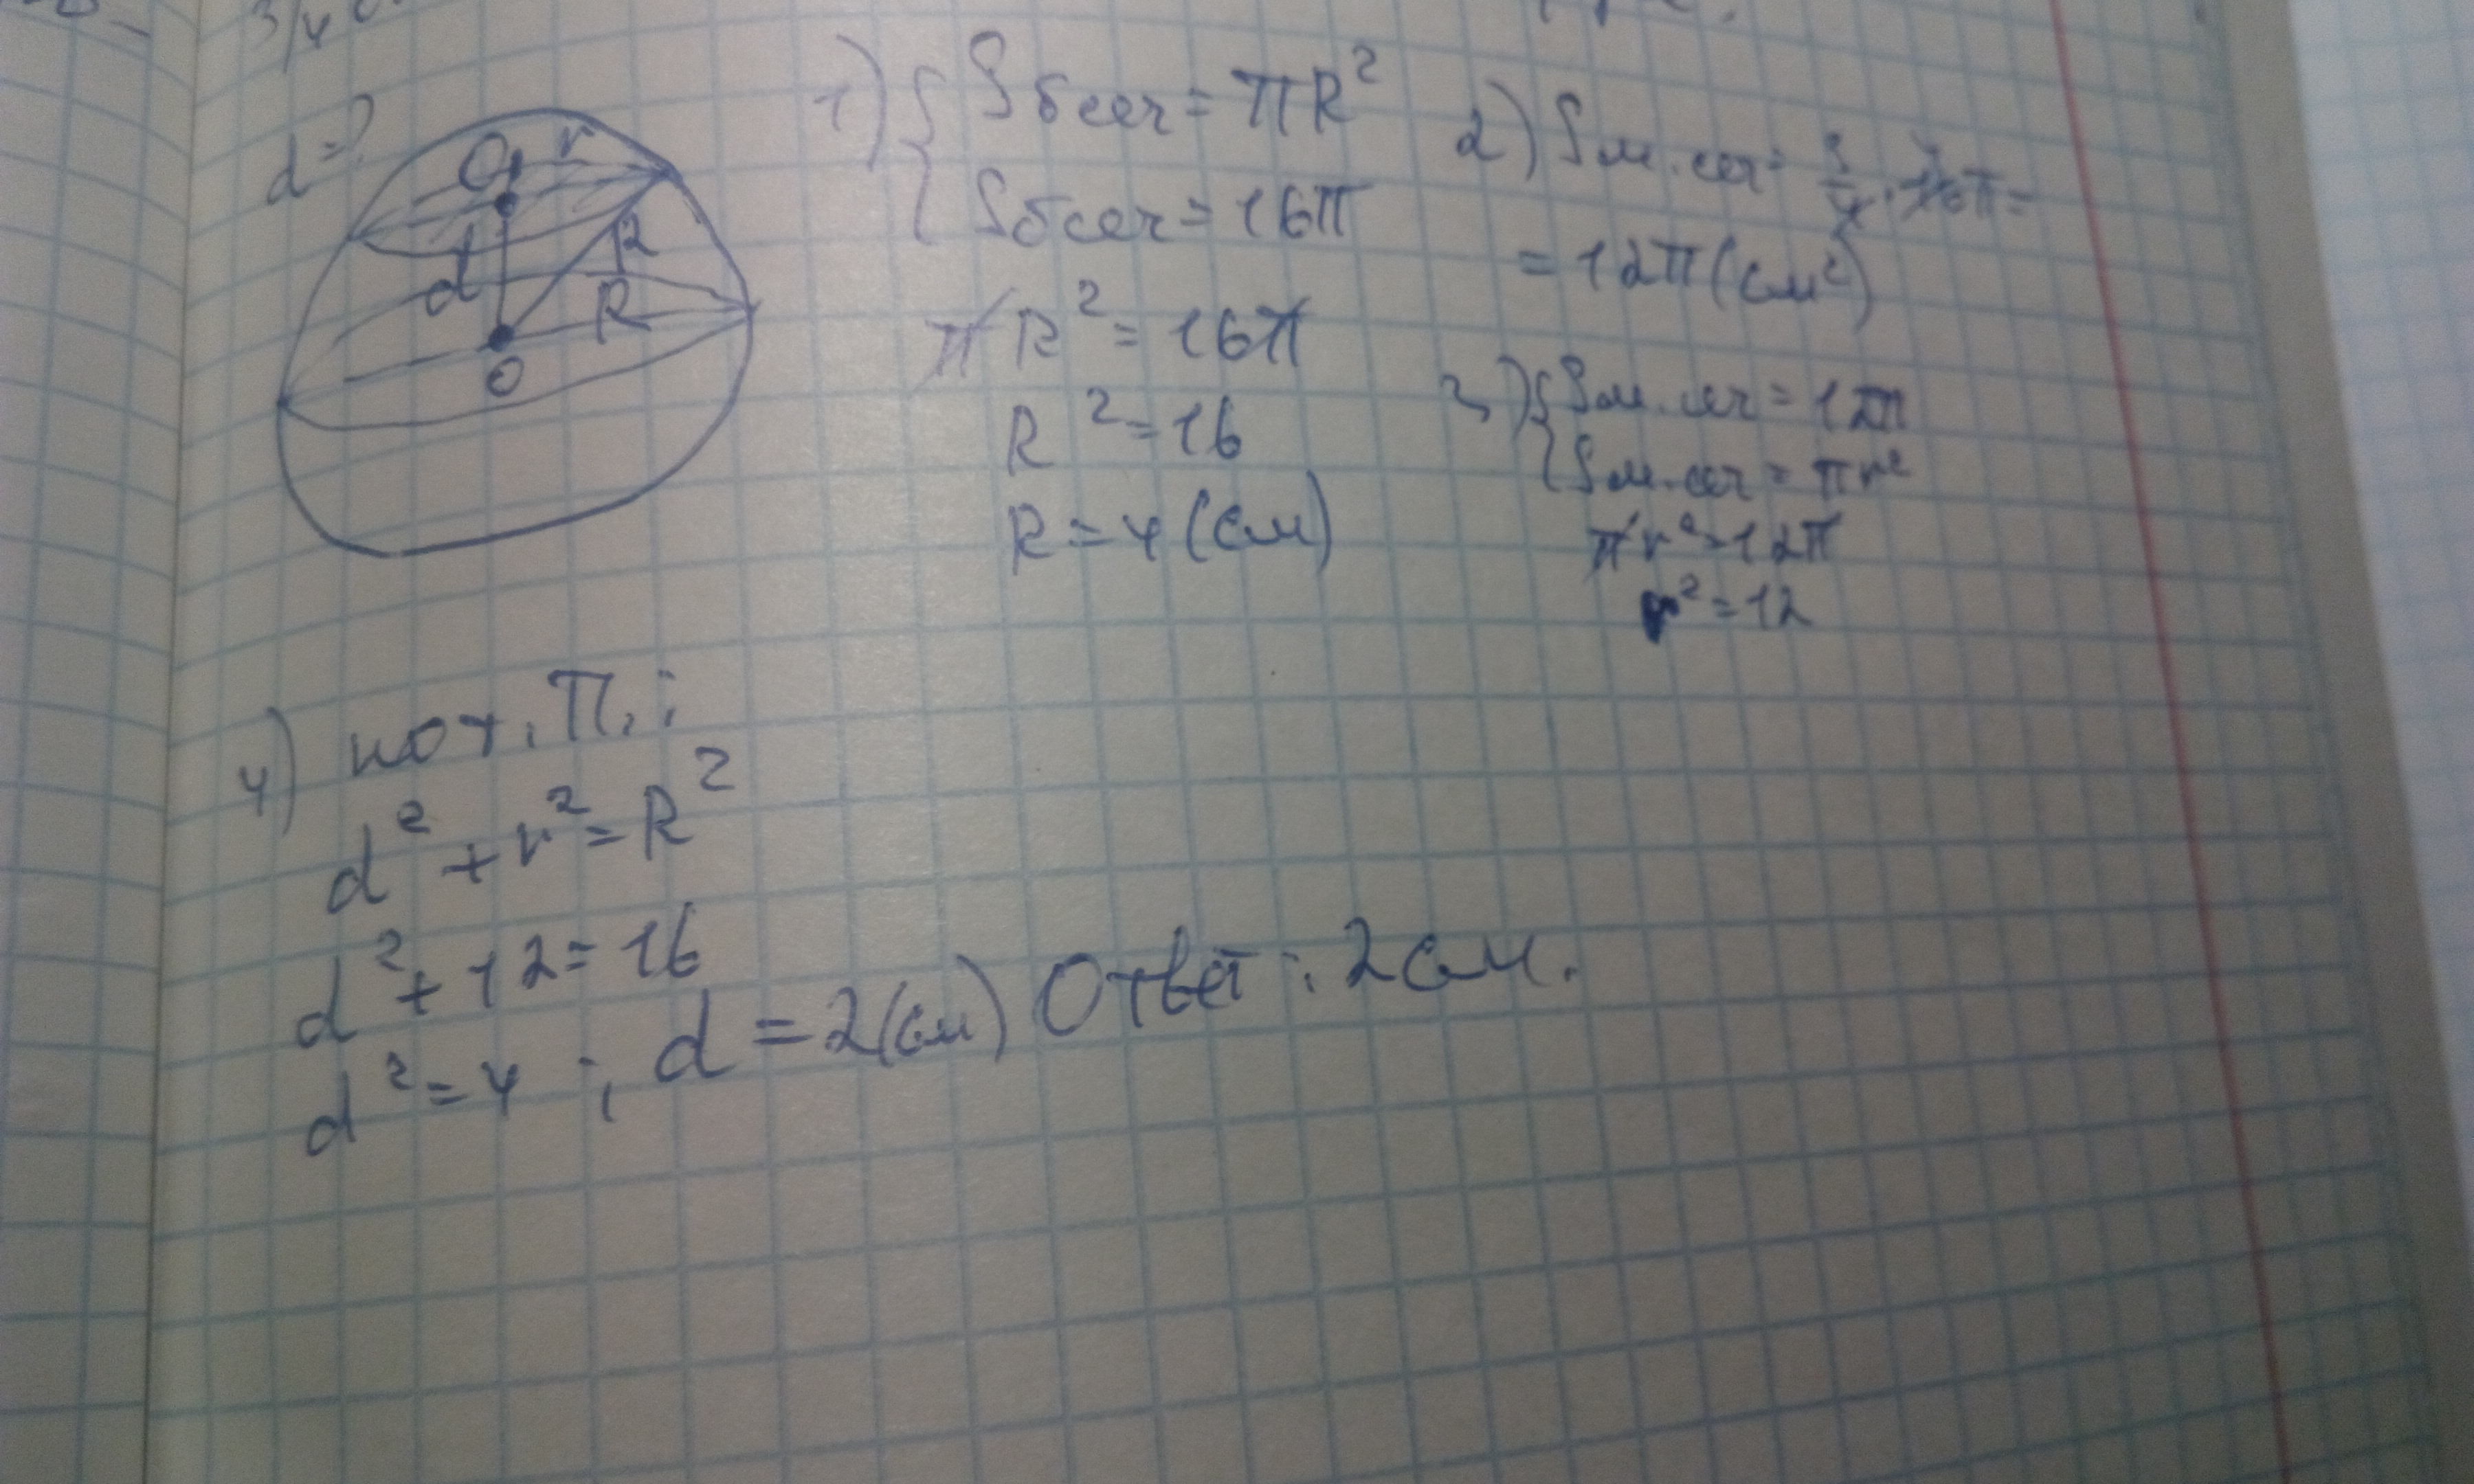 3/4
d=?
O1 r
d R
R
O
1) { Sбсеч = πR²
Sбсеч = 16π
πR² = 16π
R² = 16
R = 4 (см)
2) Sм.сеч = 3/4 · 16π =
= 12π (см²)
3) { Sм.сеч = 12π
Sм.сеч = πr²
πr² = 12π
r² = 12
4) по т. П.:
d² + r² = R²
d² + 12 = 16
d² = 4 ; d = 2(см) Ответ: 2см.